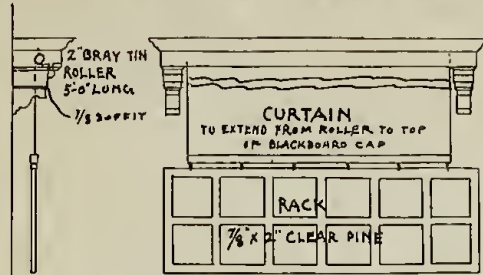 2" BRAY TIN
ROLLER
5'-0" LONG
7/8 SOFFIT
CURTAIN
TO EXTEND FROM ROLLER TO TOP
OF BLACKBOARD CAP
RACK
7/8" X 2" CLEAR PINE